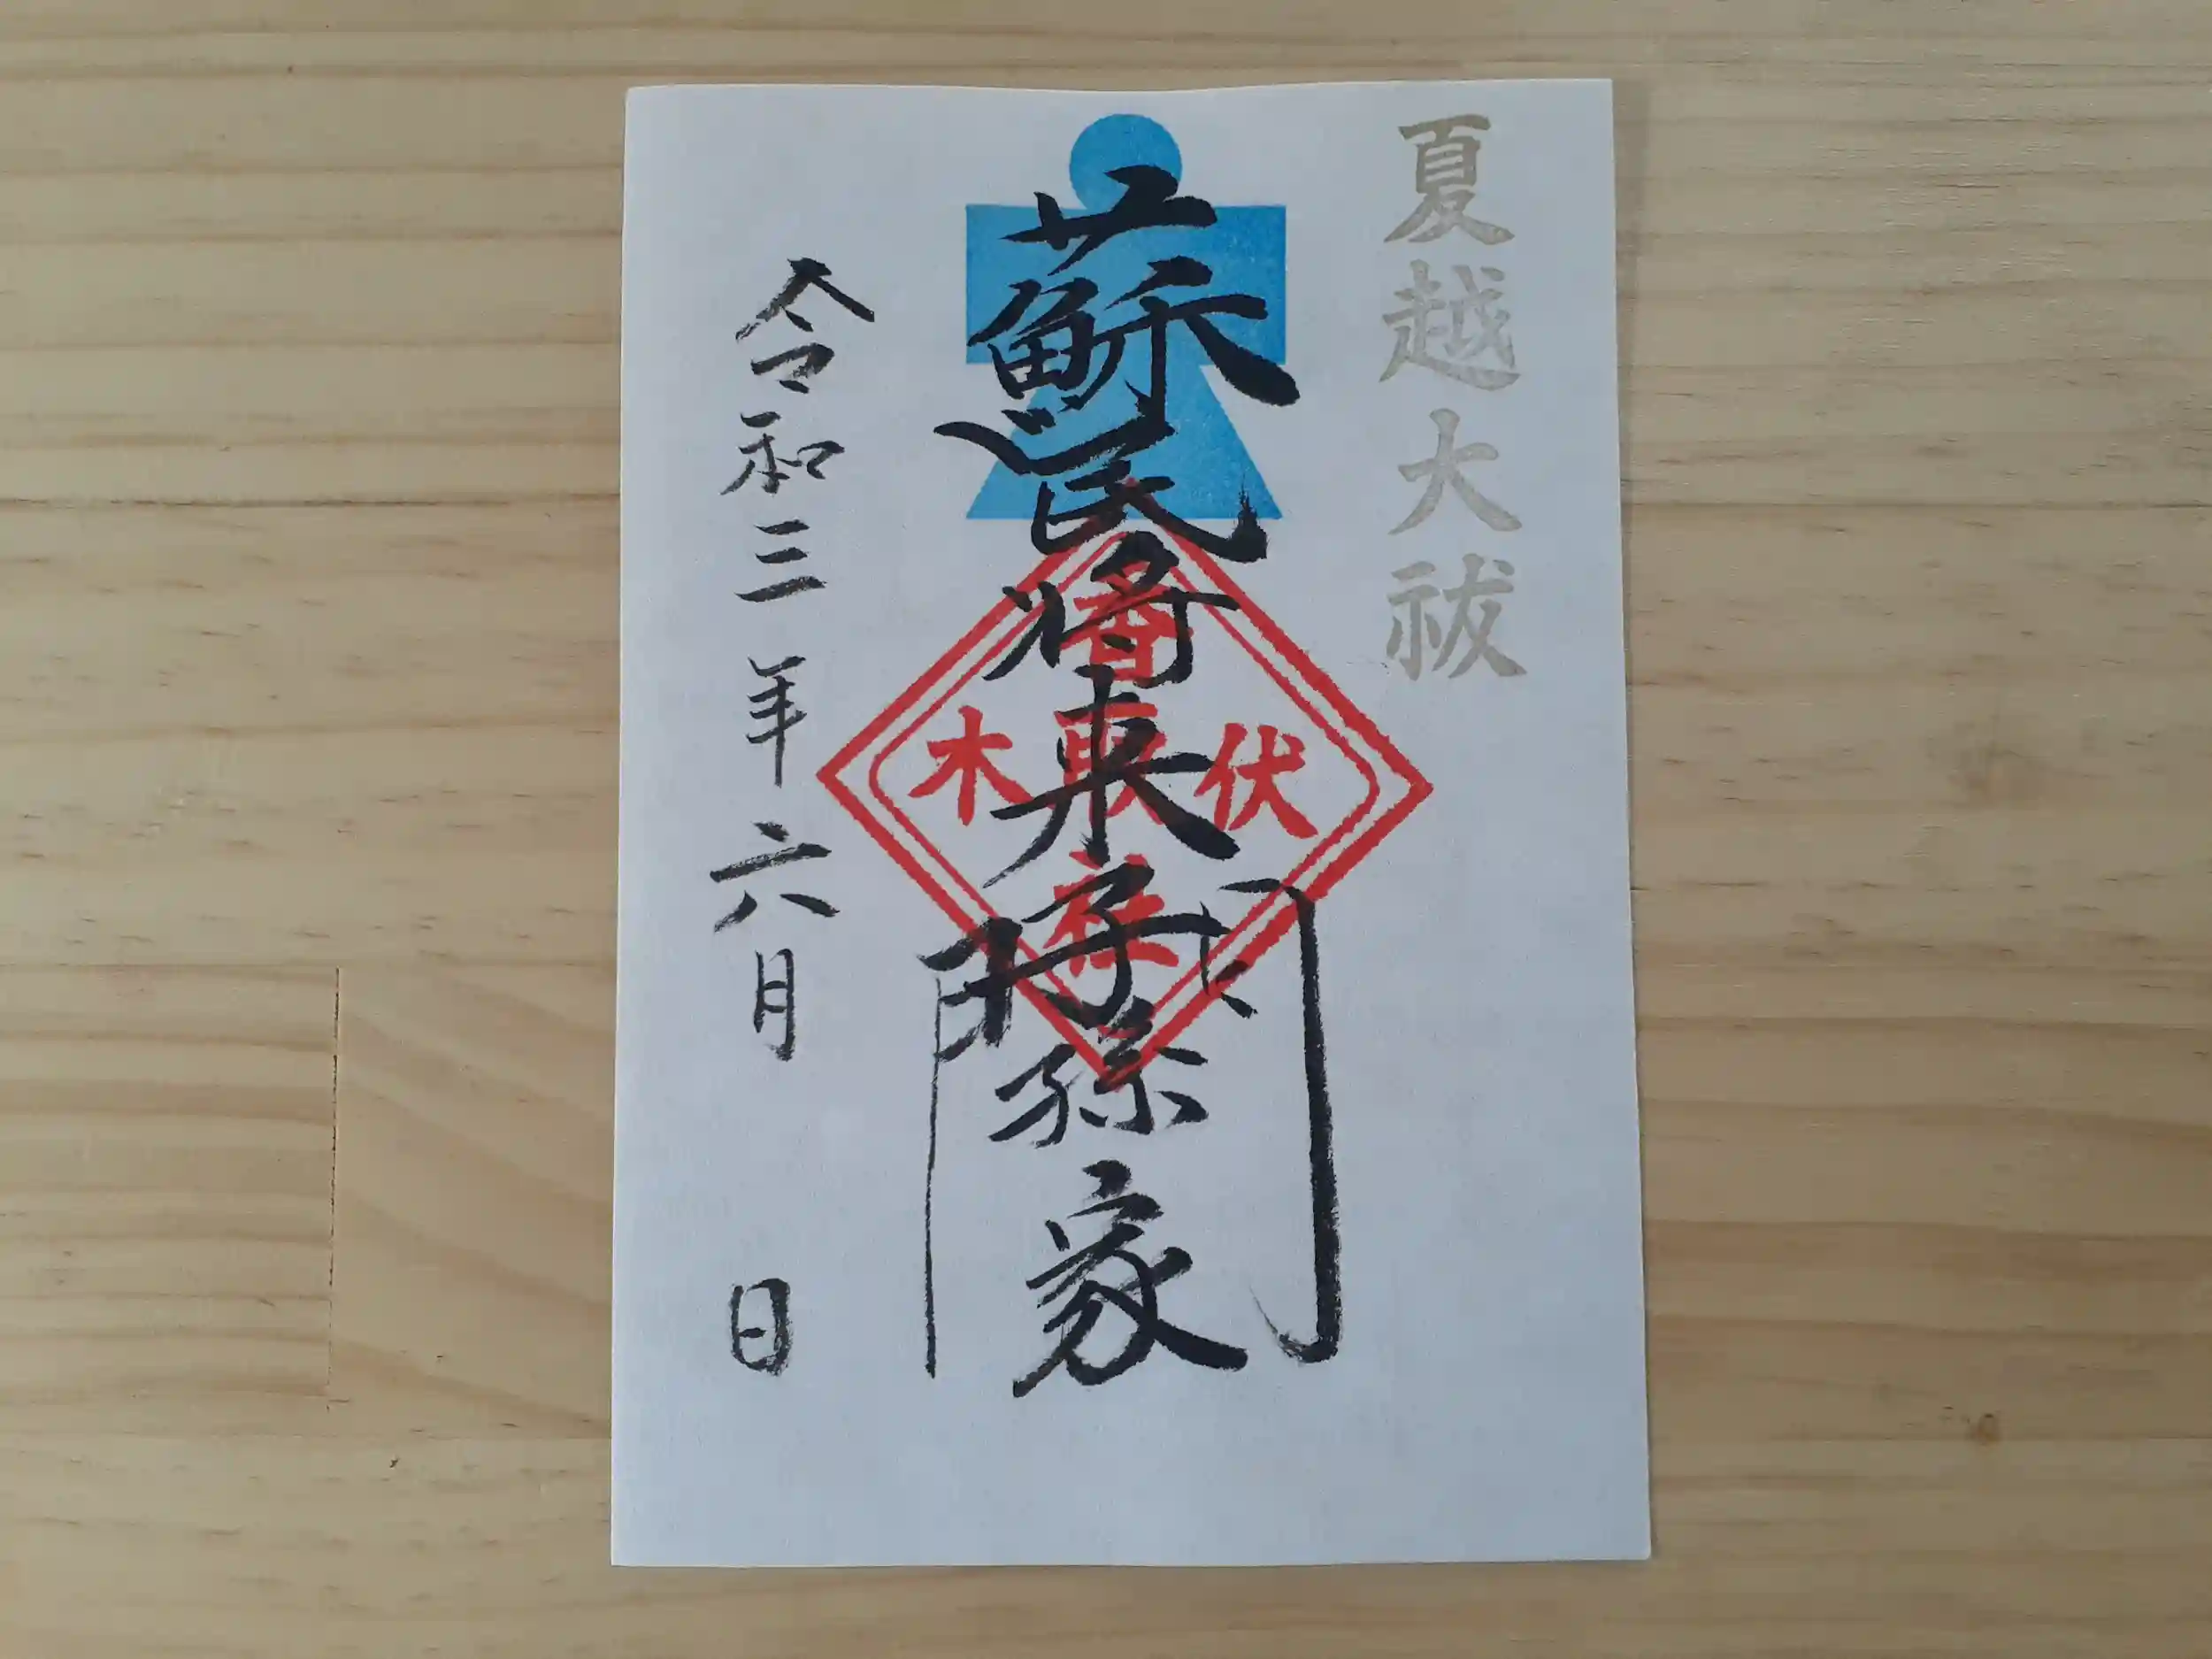 夏越大祓
蘇民将来子孫家門
伏木
令和三年六月 日